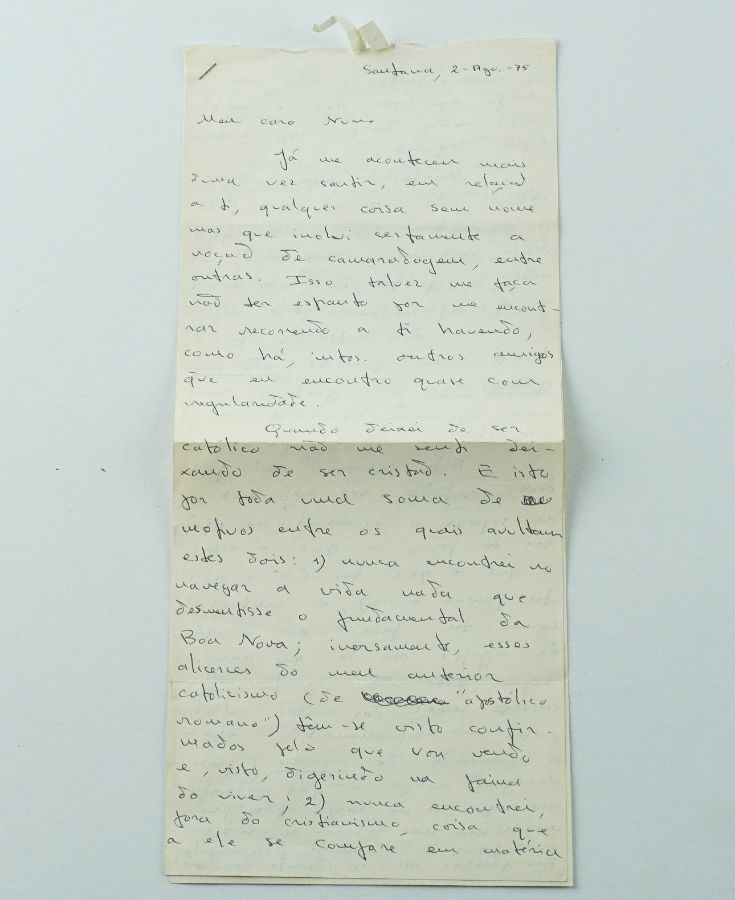 Santana, 2-Ago.-75
Meu caro Nuno
Já me aconteceu mais
duma vez sentir, em relação
a ti, qualquer coisa sem nome
mas que inclui certamente a
noção de camaradagem, entre
outras. Isso talvez me faça
não ter espanto por me encont-
rar recorrendo a ti havendo,
como há, outros amigos
que eu encontro quase com
regularidade.
Quando deixei de ser
católico não me senti dei-
xando de ser cristão. E isto
por toda uma soma de
motivos entre os quais avultam
estes dois: 1) nunca encontrei no
navegar a vida nada que
desmentisse o fundamental da
Boa Nova; inversamente, esses
alicerces do meu anterior
catolicismo (de "apostólico
romano") têm-se visto confir-
mados pelo que vou vendo
e, visto, digerindo na faina
do viver; 2) nunca encontrei,
fora do cristianismo, coisa que
a ele se compare em matéria